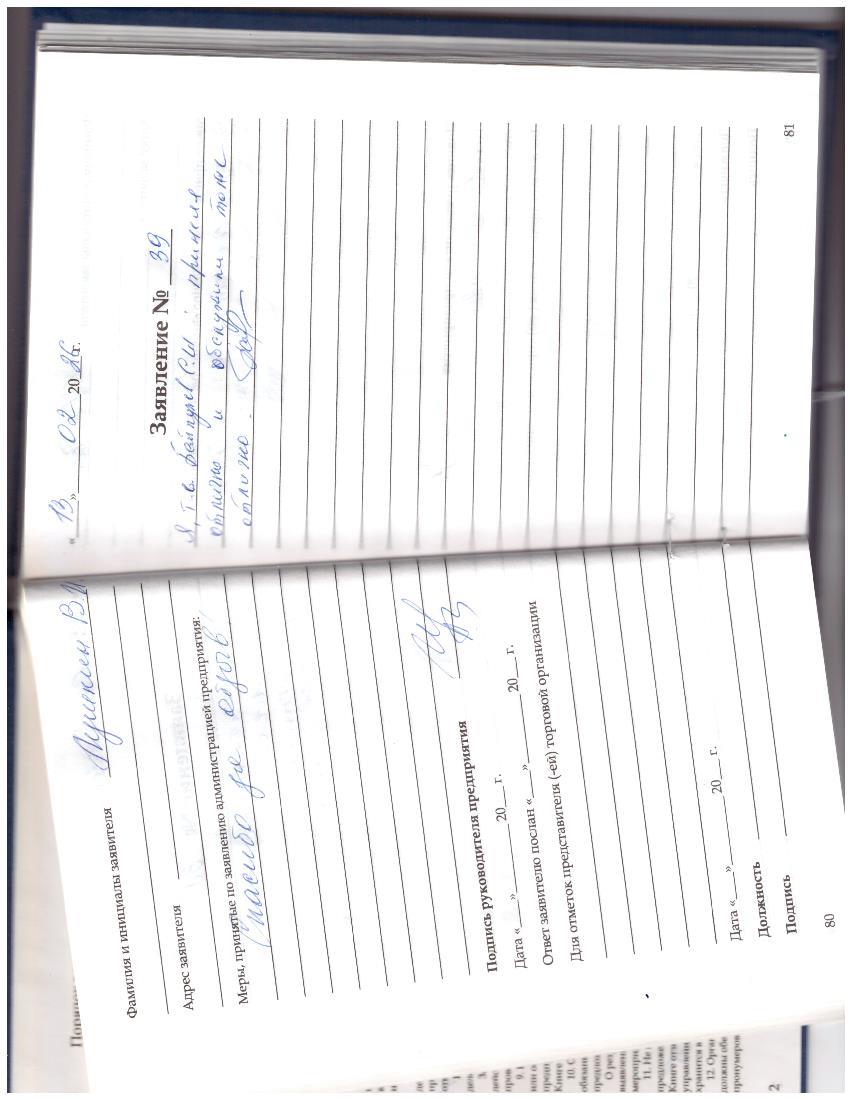 Фамилия и инициалы заявителя Пушкин В.И.
Адрес заявителя
Меры, принятые по заявлению администрацией предприятия:
Спасибо за
Подпись руководителя предприятия
Дата «___» ______ 20___ г.
Ответ заявителю послан «___» ______ 20___ г.
Для отметок представителя (-ей) торговой организации
Дата «___» ______ 20___ г.
Должность
Подпись
80
«13» 02 2026г.
Заявление № 39
Я, т.в. С.И. приняли
отлично и обслужили тоже
отлично.
81
2